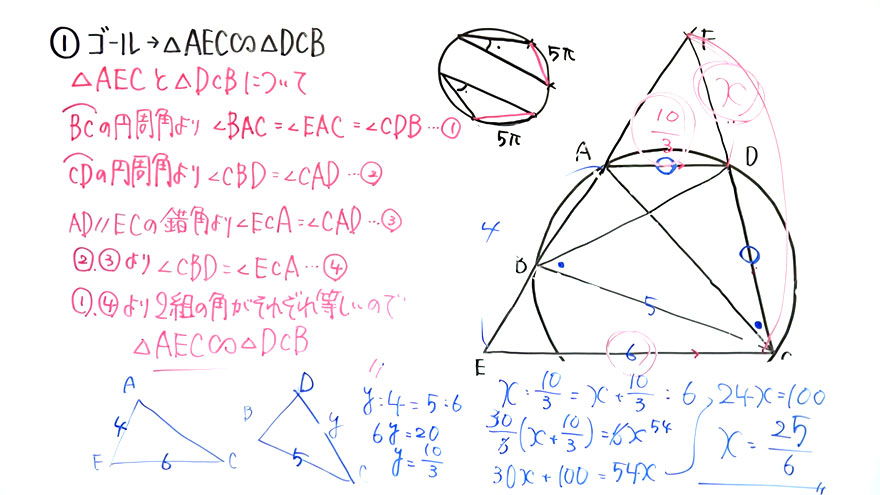 ① ゴール→△AEC∽△DCB
△AECと△DCBについて
BCの円周角より∠BAC=∠EAC=∠CDB…①
CDの円周角より∠CBD=∠CAD…②
AD//ECの錯角より∠ECA=∠CAD…③
②,③より∠CBD=∠ECA…④
①,④より2組の角がそれぞれ等しいので
△AEC∽△DCB
5π
5π
F
x
10/3
A
D
4
B
5
6
E
C
A
4
E
6
C
D
B
y
5
C
y:4=5:6
6y=20
y=10/3
x:10/3=x+10/3:6
30/3(x+10/3)=6x54
30x+100=54x
24x=100
x=25/6